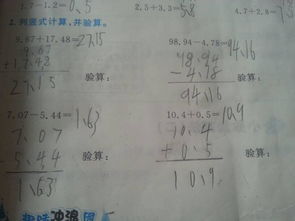 1.7-1.2= 0.5 2.5+3.3=5.8 4.7+2.8=
2.列竖式计算,并验算。
9.67+17.48=27.15 98.94-4.78=94.16
9.67 98.94
+17.48 验算: -4.78 验算:
27.15 94.16
7.07-5.44=1.63 10.4+0.5=10.9
7.07 10.4
-5.44 验算: +0.5 验算:
1.63 10.9
趣味冲浪